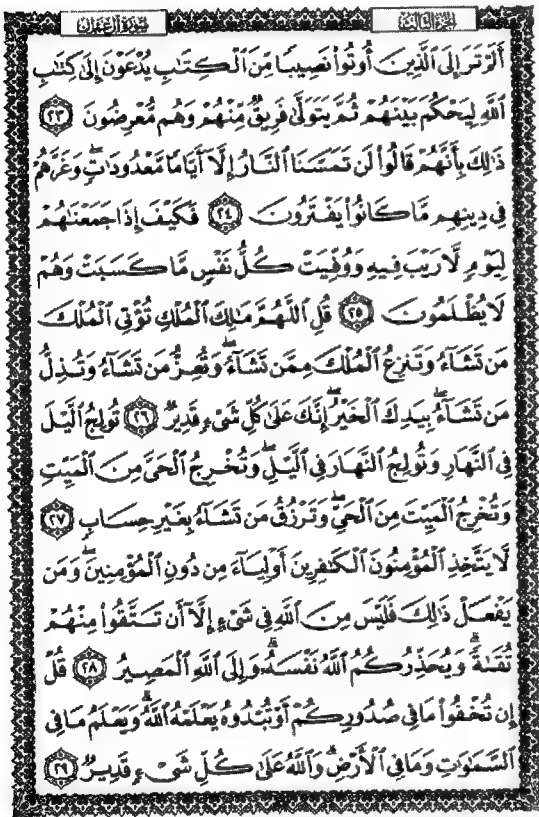 الجزء الثالث
سورة آل عمران
أَلَمْ تَرَ إِلَى ٱلَّذِينَ أُوتُوا۟ نَصِيبًا مِّنَ ٱلْكِتَٰبِ يُدْعَوْنَ إِلَىٰ كِتَٰبِ
ٱللَّهِ لِيَحْكُمَ بَيْنَهُمْ ثُمَّ يَتَوَلَّىٰ فَرِيقٌ مِّنْهُمْ وَهُم مُّعْرِضُونَ ٢٣
ذَٰلِكَ بِأَنَّهُمْ قَالُوا۟ لَن تَمَسَّنَا ٱلنَّارُ إِلَّآ أَيَّامًا مَّعْدُودَٰتٍ ۖ وَغَرَّهُمْ
فِى دِينِهِم مَّا كَانُوا۟ يَفْتَرُونَ ٢٤ فَكَيْفَ إِذَا جَمَعْنَٰهُمْ
لِيَوْمٍ لَّا رَيْبَ فِيهِ وَوُفِّيَتْ كُلُّ نَفْسٍ مَّا كَسَبَتْ وَهُمْ
لَا يُظْلَمُونَ ٢٥ قُلِ ٱللَّهُمَّ مَٰلِكَ ٱلْمُلْكِ تُؤْتِى ٱلْمُلْكَ
مَن تَشَآءُ وَتَنزِعُ ٱلْمُلْكَ مِمَّن تَشَآءُ وَتُعِزُّ مَن تَشَآءُ وَتُذِلُّ
مَن تَشَآءُ ۖ بِيَدِكَ ٱلْخَيْرُ ۖ إِنَّكَ عَلَىٰ كُلِّ شَىْءٍ قَدِيرٌ ٢٦ تُولِجُ ٱلَّيْلَ
فِى ٱلنَّهَارِ وَتُولِجُ ٱلنَّهَارَ فِى ٱلَّيْلِ ۖ وَتُخْرِجُ ٱلْحَىَّ مِنَ ٱلْمَيِّتِ
وَتُخْرِجُ ٱلْمَيِّتَ مِنَ ٱلْحَىِّ ۖ وَتَرْزُقُ مَن تَشَآءُ بِغَيْرِ حِسَابٍ ٢٧
لَّا يَتَّخِذِ ٱلْمُؤْمِنُونَ ٱلْكَٰفِرِينَ أَوْلِيَآءَ مِن دُونِ ٱلْمُؤْمِنِينَ ۖ وَمَن
يَفْعَلْ ذَٰلِكَ فَلَيْسَ مِنَ ٱللَّهِ فِى شَىْءٍ إِلَّآ أَن تَتَّقُوا۟ مِنْهُمْ
تُقَىٰةً ۗ وَيُحَذِّرُكُمُ ٱللَّهُ نَفْسَهُۥ ۗ وَإِلَى ٱللَّهِ ٱلْمَصِيرُ ٢٨ قُلْ
إِن تُخْفُوا۟ مَا فِى صُدُورِكُمْ أَوْ تُبْدُوهُ يَعْلَمْهُ ٱللَّهُ ۗ وَيَعْلَمُ مَا فِى
ٱلسَّمَٰوَٰتِ وَمَا فِى ٱلْأَرْضِ ۗ وَٱللَّهُ عَلَىٰ كُلِّ شَىْءٍ قَدِيرٌ ٢٩